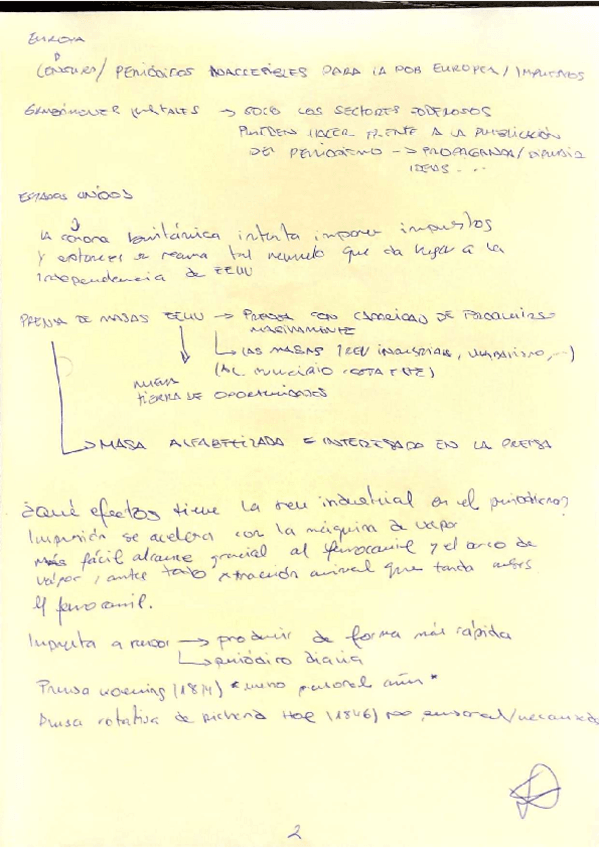 EUROPA
CENSURA / PERIÓDICOS INACCESIBLES PARA LA POB EUROPEA / IMPUESTOS
→ SOLO LOS SECTORES PODEROSOS
PUEDEN HACER FRENTE A LA PUBLICACIÓN
DEL PERIODISMO → PROPAGANDA / DIFUNDIR
IDEAS ...
ESTADOS UNIDOS
LA corona británica intenta imponer impuestos
y entonces se arma tal revuelo que da lugar a la
independencia de EEUU
PRENSA DE MASAS EEUU → PRENSA CON CAPACIDAD DE PRODUCIRSE
MASIVAMENTE
LAS MASAS (REV INDUSTRIAL, URBANISMO, ...)
(AL PRINCIPIO COSTA ESTE)
NUEVA
TIERRA DE OPORTUNIDADES
→ MASA ALFABETIZADA = INTERESADO EN LA PRENSA
¿Qué efectos tiene la rev industrial en el periodismo?
Impresión se acelera con la máquina de vapor
Más fácil alcance gracias al ferrocarril y el barco de
vapor, antes todo tracción animal que tarda meses
el ferrocarril.
Imprenta a vapor → producir de forma más rápida
periódico diario
Prensa Koening (1814) *
Prensa rotativa de Richard Hoe (1846) no personal / mecanizada
2